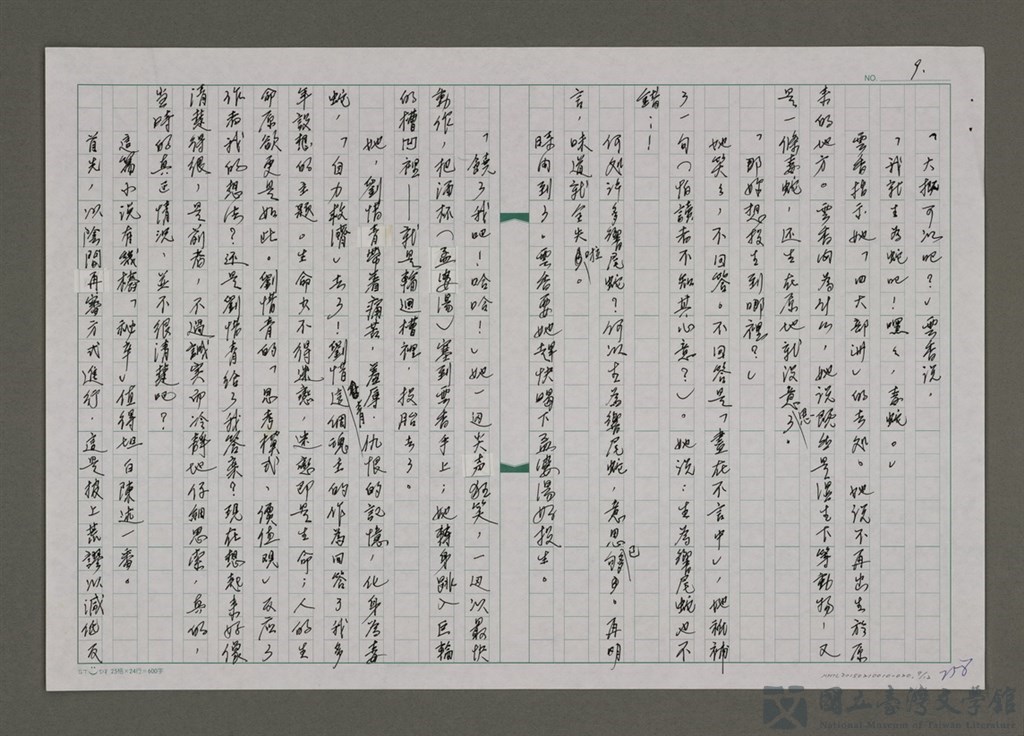 NO. 9.
「大概可以吧？」雲香說。
「我就生為蛇吧！嘿嘿，毒蛇。」
雲香指示她「四大部洲」的去処。她說不再出生於原
來的地方。雲香问為什么，她說既然是溼生下等動物，又
是一條毒蛇，还生在原地就沒意思了。
「那妳想投生到哪裡？」
她笑々，不回答。不回答是「盡在不言中」，她祇補
了一句（怕讀者不知其心意？）。她說：生為響尾蛇也不
錯…！
何処许多響尾蛇？何以生為響尾蛇，意思已夠。再明
言，味道就全失啦。
時间到了。雲香要她趕快喝下孟婆湯好投生。
「饒了我吧！哈哈！」她一边尖声狂笑，一边以最快
動作，把酒杯（孟婆湯）塞到雲香手上；她轉身跳入巨輪
的槽凹裡——就是輪迴槽裡，投胎去了。
她，劉惜青帶着痛苦，羞辱，仇恨的記憶，化身為毒
蛇，「自力救濟」去了！劉惜青這個魂主的作為回答了我多
年設想的主題。生命少不得迷戀，迷戀即是生命；人的生
命原欲更是如此。劉惜青的「思考模式、價值观」反应了
作者我的想法？还是劉惜青给了我答案？現在想起來好像
清楚得很，是前者，不過誠实而冷静地仔細思索，真的，
当時的真正情況，並不很清楚吧？
這篇小说有幾樁「秘辛」值得坦白陳述一番。
首先，以陰間再審方式進行，這是披上荒謬以減低反
23格×24行=600字
258
國立臺灣文學館
National Museum of Taiwan Literature